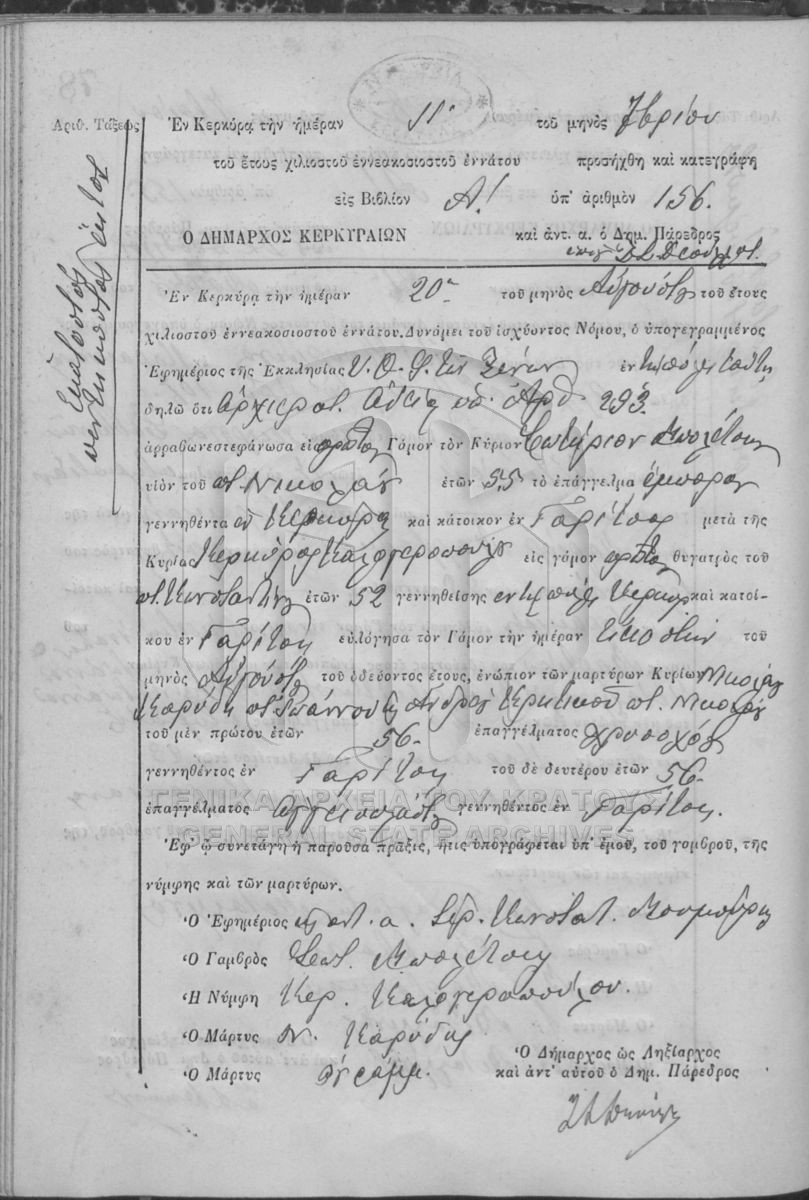 Ἀριθ. Τάξεως
Ἑκατοστὸς
πεντηκοστὸς ἕκτος
Ἐν Κερκύρᾳ τὴν ἡμέραν 11 τοῦ μηνὸς 7βρίου
τοῦ ἔτους χιλιοστοῦ ἐννεακοσιοστοῦ ἐννάτου προσήχθη καὶ κατεγράφη
εἰς Βιβλίον Α! ὑπ' ἀριθμὸν 156.
Ο ΔΗΜΑΡΧΟΣ ΚΕΡΚΥΡΑΙΩΝ καὶ ἀντ. α. ὁ Δημ. Πάρεδρος
Ἐν Κερκύρᾳ τὴν ἡμέραν 20 τοῦ μηνὸς Αὐγούστου τοῦ ἔτους
χιλιοστοῦ ἐννεακοσιοστοῦ ἐννάτου. Δυνάμει τοῦ ἰσχύοντος Νόμου, ὁ ὑπογεγραμμένος
Ἐφημέριος τῆς Ἐκκλησίας Υ. Θ. Φ. τῶν Ξένων ἐν τῇ πόλει ταύτῃ
δηλῶ ὅτι Ἀρχιερατ. Ἀδείᾳ ὑπ. Ἀρθ 293.
ἀρραβωνεστεφάνωσα εἰς πρῶτον Γάμον τὸν Κύριον Σωτήριον Μπολέτσην
υἱὸν τοῦ ποτ. Νικολάου ἐτῶν 55 τὸ ἐπάγγελμα ἔμπορον
γεννηθέντα ἐν Κερκύρᾳ καὶ κάτοικον ἐν Γαρίτσᾳ μετὰ τῆς
Κυρίας Κερκύρας Καλογεροπούλου εἰς γάμον πρῶτον θυγατρὸς τοῦ
ποτ. Κωνσταντίνου ἐτῶν 52 γεννηθείσης ἐν τῇ πόλει Κερκύρας καὶ κατοί-
κου ἐν Γαρίτσῃ εὐλόγησα τὸν Γάμον τὴν ἡμέραν εἰκοστὴν τοῦ
μηνὸς Αὐγούστου τοῦ ὁδεύοντος ἔτους, ἐνώπιον τῶν μαρτύρων Κυρίων Νικολάου
Καρύδη ποτ. Ἰωάννου καὶ Ἀνδρέου ποτ. Νικολάου
τοῦ μὲν πρώτου ἐτῶν 56. ἐπαγγέλματος χρυσοχόου
γεννηθέντος ἐν Γαρίτσῃ τοῦ δὲ δευτέρου ἐτῶν 56.
ἐπαγγέλματος γεννηθέντος ἐν Γαρίτσῃ.
ΓΕΝΙΚΑ ΑΡΧΕΙΑ ΤΟΥ ΚΡΑΤΟΥΣ
GENERAL STATE ARCHIVES
Ἐφ' ᾧ συνετάγη ἡ παροῦσα πρᾶξις, ἥτις ὑπογράφεται ὑπ' ἐμοῦ, τοῦ γομβροῦ, τῆς
νύμφης καὶ τῶν μαρτύρων.
Ὁ Ἐφημέριος ἀντ. α. Ἱερ. Κωνσταντ.
Ὁ Γαμβρὸς Σωτ. Μπολέτσης
Ἡ Νύμφη Κερ. Καλογεροπούλου.
Ὁ Μάρτυς Ν. Καρύδης
Ὁ Μάρτυς ἀγράμμ.
Ὁ Δήμαρχος ὡς Ληξίαρχος
καὶ ἀντ' αὐτοῦ ὁ Δημ. Πάρεδρος